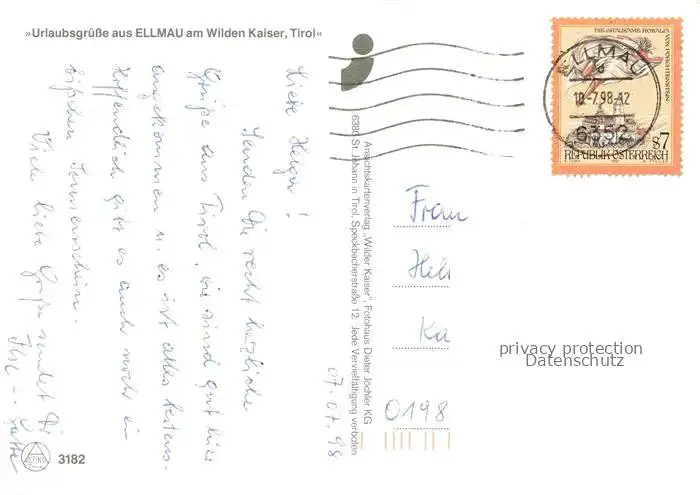 »Urlaubsgrüße aus ELLMAU am Wilden Kaiser, Tirol«
Liebe Helga!
Senden Dir recht herzliche
Grüße aus Tirol, wir sind gut hier
angekommen u. es ist alles bestens.
Hoffendlich gibt es auch noch ein
bißchen Sonnenschein.
Viele liebe Grüße sendet Dir
Ilse
07.07.98
Ansichtskartenverlag „Wilder Kaiser“, Fotohaus Dieter Jöchler KG
6380 St. Johann in Tirol, Speckbacherstraße 12. Jede Vervielfältigung verboten
ELLMAU
10.-7.98-12
6352
VON FORCHTENSTEIN
S7
REPUBLIK ÖSTERREICH
Frau
Hel
Ka
0198
privacy protection
Datenschutz
ALPINA
3182